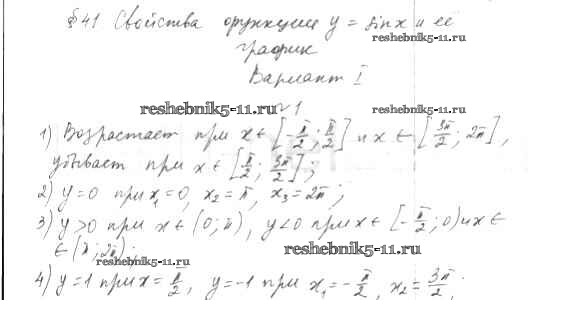 §41 Свойства функции y = sin x и её
reshebnik5-11.ru
график
Вариант I
reshebnik5-11.ru
№1
reshebnik5-11.ru
1) Возрастает при x ∈ [-π/2; π/2] и x ∈ [3π/2; 2π],
убывает при x ∈ [π/2; 3π/2];
2) y=0 при x₁=0, x₂=π, x₃=2π;
3) y>0 при x ∈ (0; π), y<0 при x ∈ [-π/2; 0) и x ∈
∈ (π; 2π);
reshebnik5-11.ru
reshebnik5-11.ru
4) y=1 при x=π/2, y=-1 при x₁=-π/2, x₂=3π/2;